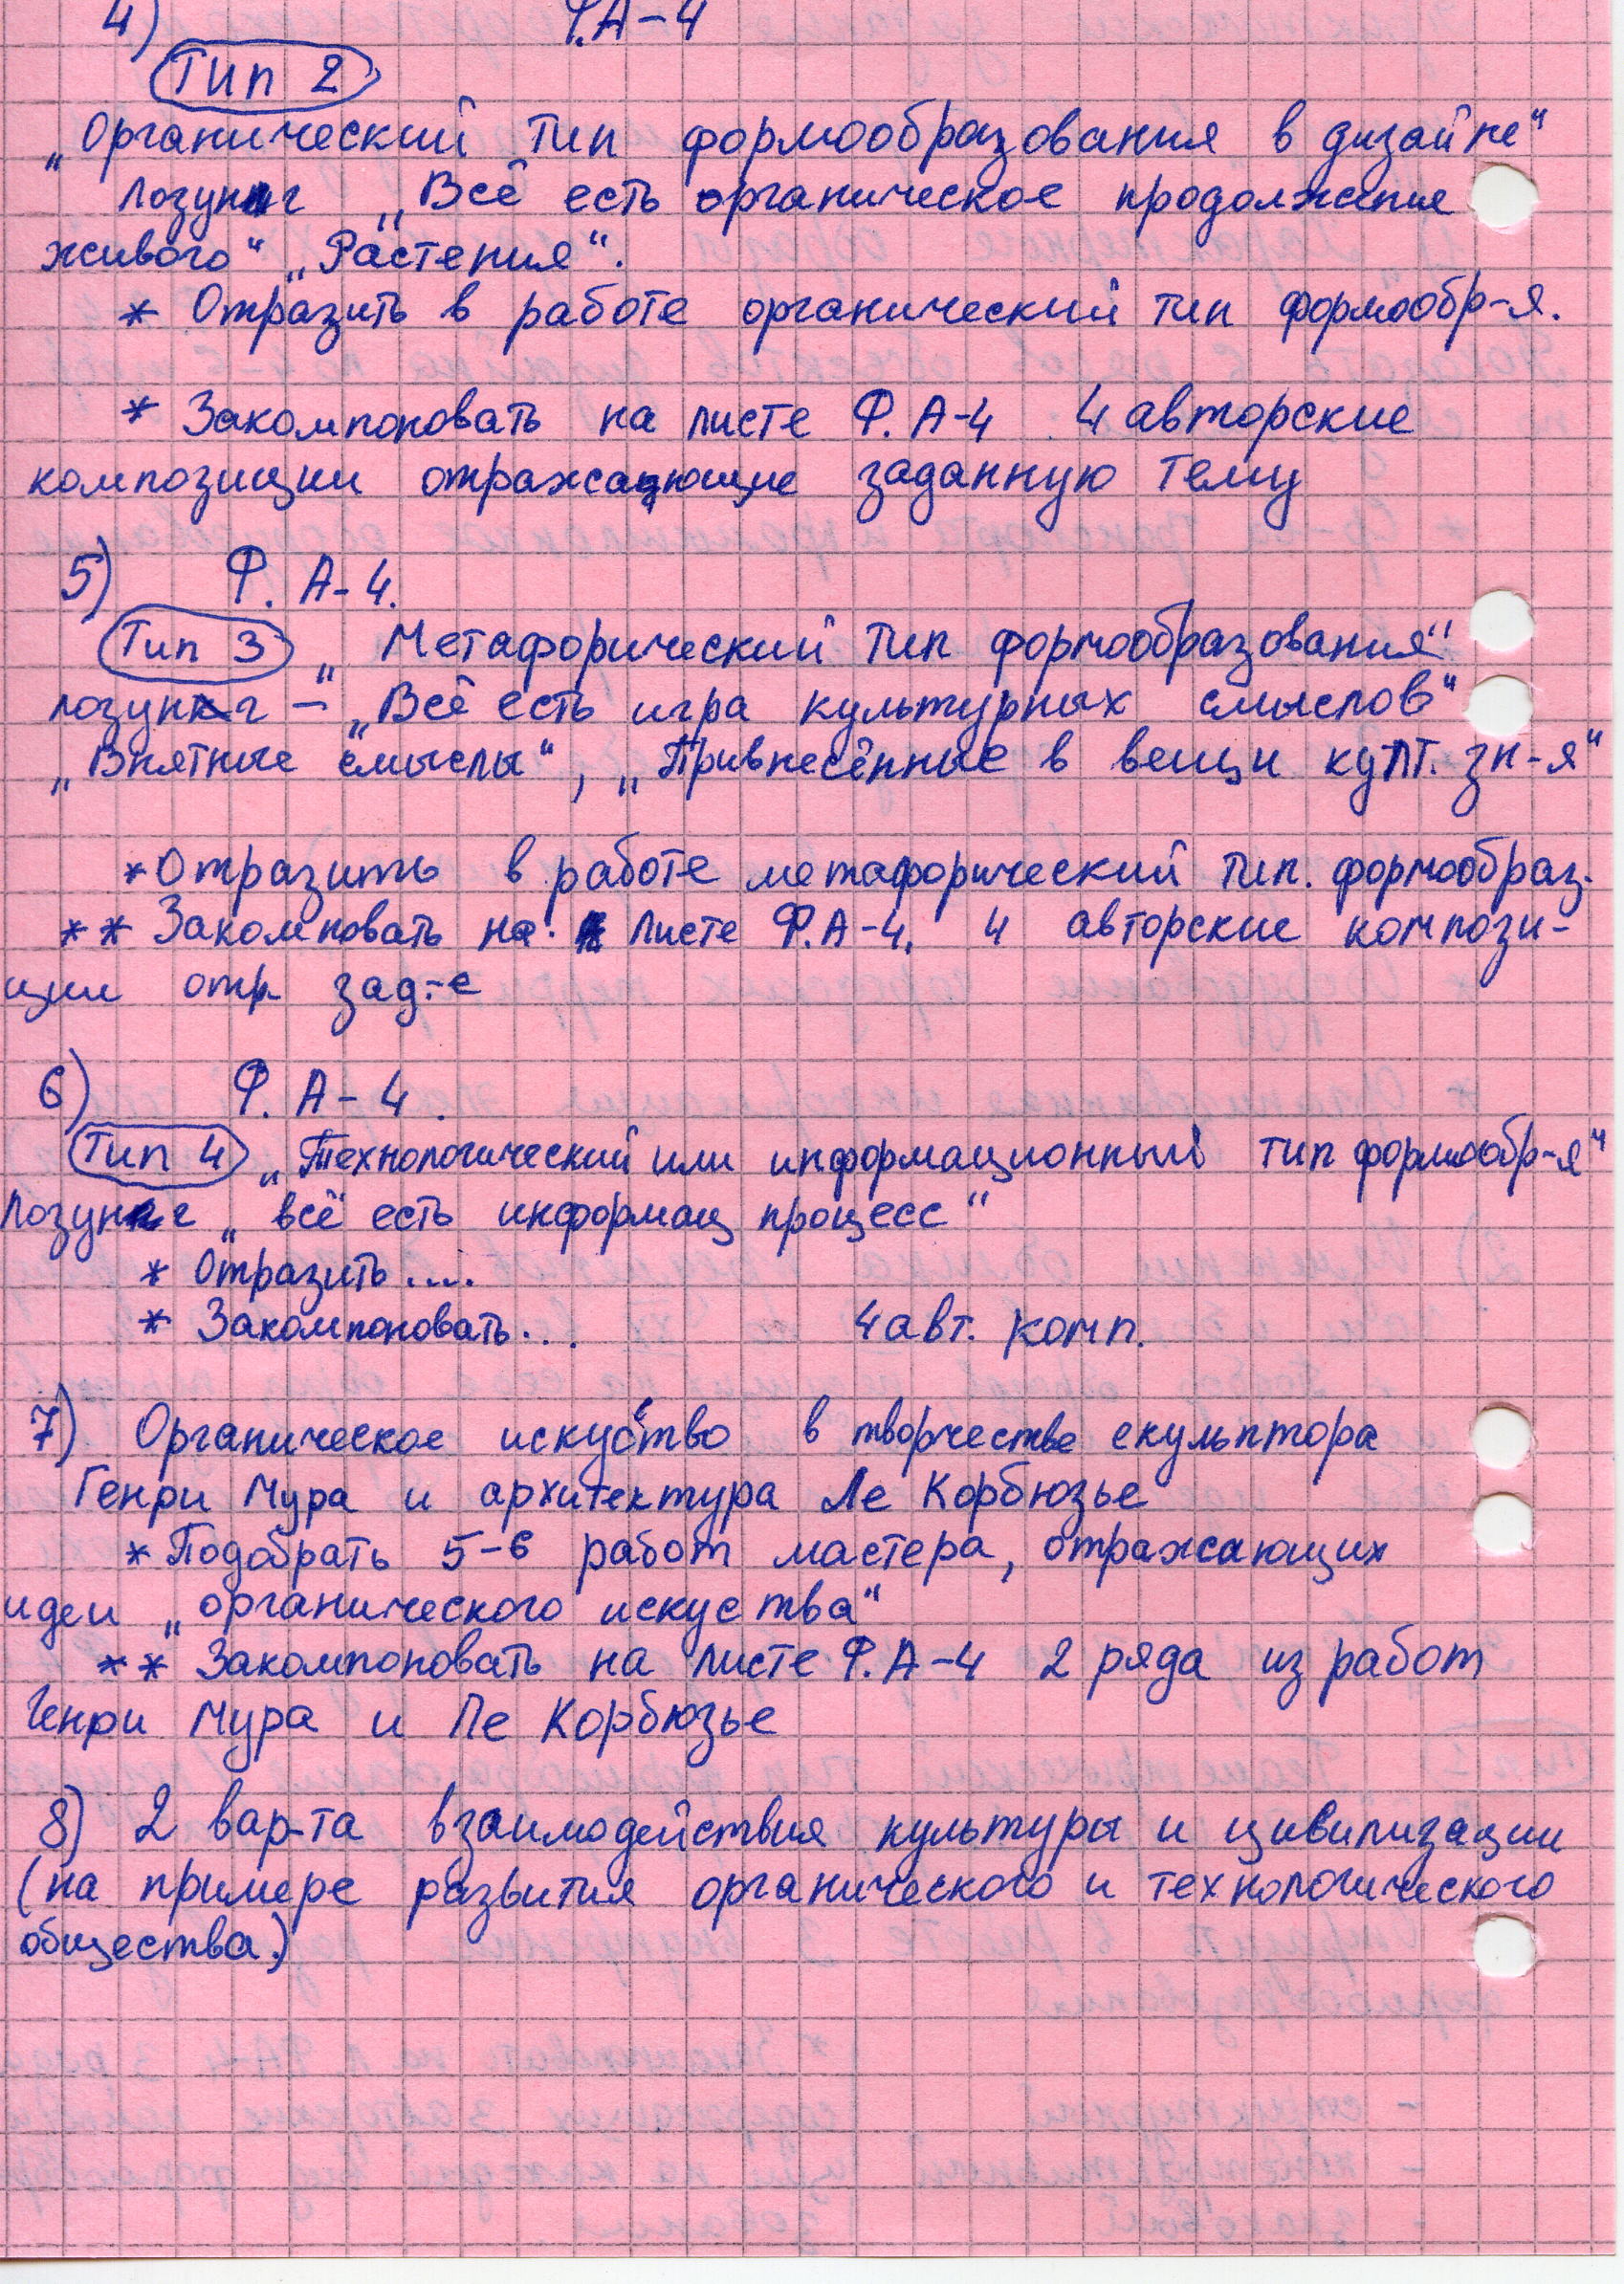 4) Ф.А-4
Тип 2
„Органический тип формообразования в дизайне“
лозунг „Всё есть органическое продолжение
живого“ „Растения“.
* Отразить в работе органический тип формообр-я.
* Закомпоновать на листе Ф.А-4 4 авторские
композиции отражающие заданную тему
5) Ф. А-4.
Тип 3 „Метафорический тип формообразования“
лозунг – „Всё есть игра культурных смыслов“
„Внятные смыслы“, „Привнесённые в вещи культ. зн-я“
* Отразить в работе метафорический тип. формообраз.
** Закомповать на листе Ф.А-4. 4 авторские компози-
ции отр зад-е
6) Ф. А-4.
Тип 4 „Технологический или информационный тип формообр-я“
лозунг „всё есть информац процесс“
* Отразить ....
* Закомпоновать... 4 авт. комп.
7) Органическое искуство в творчестве скульптора
Генри Мура и архитектура Ле Корбюзье
* Подобрать 5-6 работ мастера, отражающих
идеи „органического искуства“
** Закомпоновать на листе Ф.А-4 2 ряда из работ
Генри Мура и Ле Корбюзье
8) 2 вар-та взаимодействия культуры и цивилизации
(на примере развития органического и технологического
общества.)